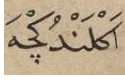 اَكْلَنْدُكْچَه